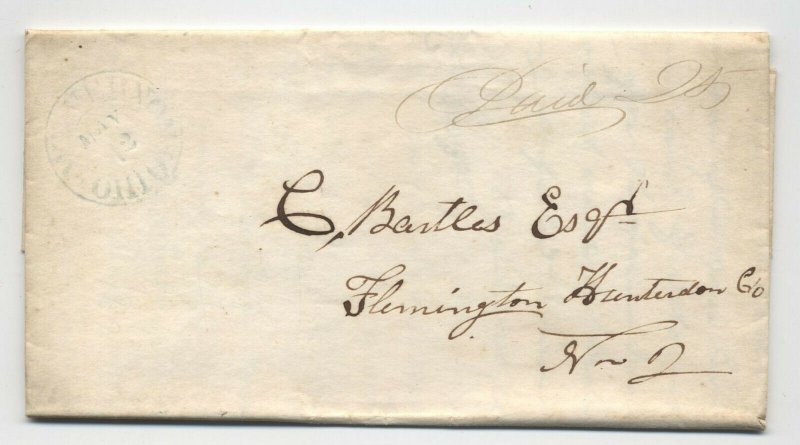 Paid 25
MAY
2
OHIO
C, Bartles Esqr
Flemington Hunterdon Co
N J